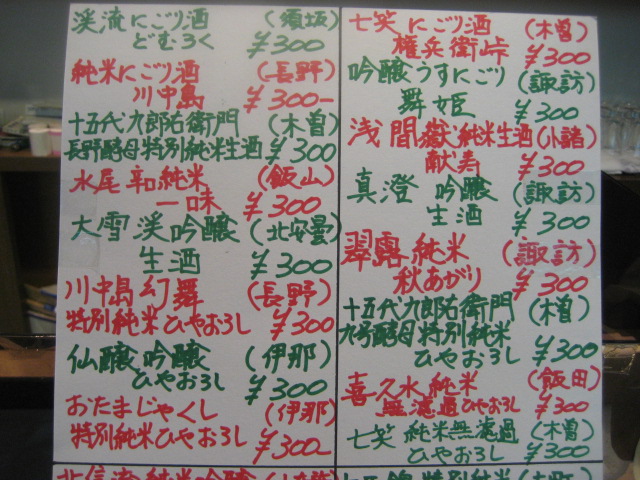 渓流にごり酒 (須坂)
どむろく ¥300
純米にごり酒 (長野)
川中島 ¥300-
十五代九郎右衛門 (木曽)
長野酵母特別純米生酒 ¥300
水尾 辛純米 (飯山)
一味 ¥300
大雪渓吟醸 (北安曇)
生酒 ¥300
川中島幻舞 (長野)
特別純米ひやおろし ¥300
仙醸吟醸 (伊那)
ひやおろし ¥300
おたまじゃくし (伊那)
特別純米ひやおろし ¥300-
北信流純米吟醸
七笑にごり酒 (木曽)
権兵衛峠 ¥300
吟醸うすにごり (諏訪)
舞姫 ¥300
浅間嶽純米生酒 (小諸)
献寿 ¥300
真澄 吟醸 (諏訪)
生酒 ¥300
翠露純米 (諏訪)
秋あがり ¥300
十五代九郎右衛門 (木曽)
九号酵母特別純米
ひやおろし ¥300
喜久水純米 (飯田)
無濾過ひやおろし ¥300
七笑 純米無濾過 (木曽)
ひやおろし ¥300
特別純米